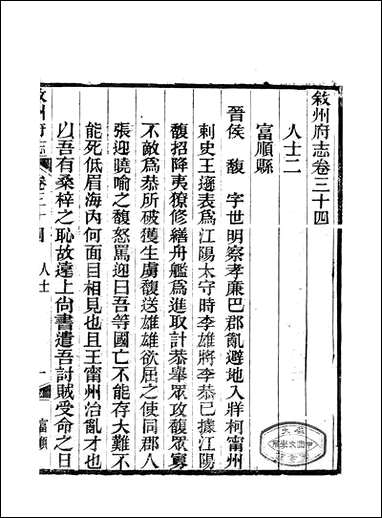 敘州府志卷三十四
人士二
富順縣
晉侯馥 字世明察孝廉巴郡亂避地入牂柯甯州
刺史王遜表爲江陽太守時李雄將李恭已據江陽
馥招降夷獠修繕舟艦爲進取計恭舉眾攻馥眾寡
不敵爲恭所破獲生虜馥送雄雄欲屈之使同郡人
張迎曉喻之馥怒罵迎曰吾等國亡不能存大難不
能死低眉海內何面目相見也且王甯州治亂才也
以吾有桑梓之恥故遠上尙書遣吾討賊受命之日
敘州府志 卷三十四 人士 一 富順